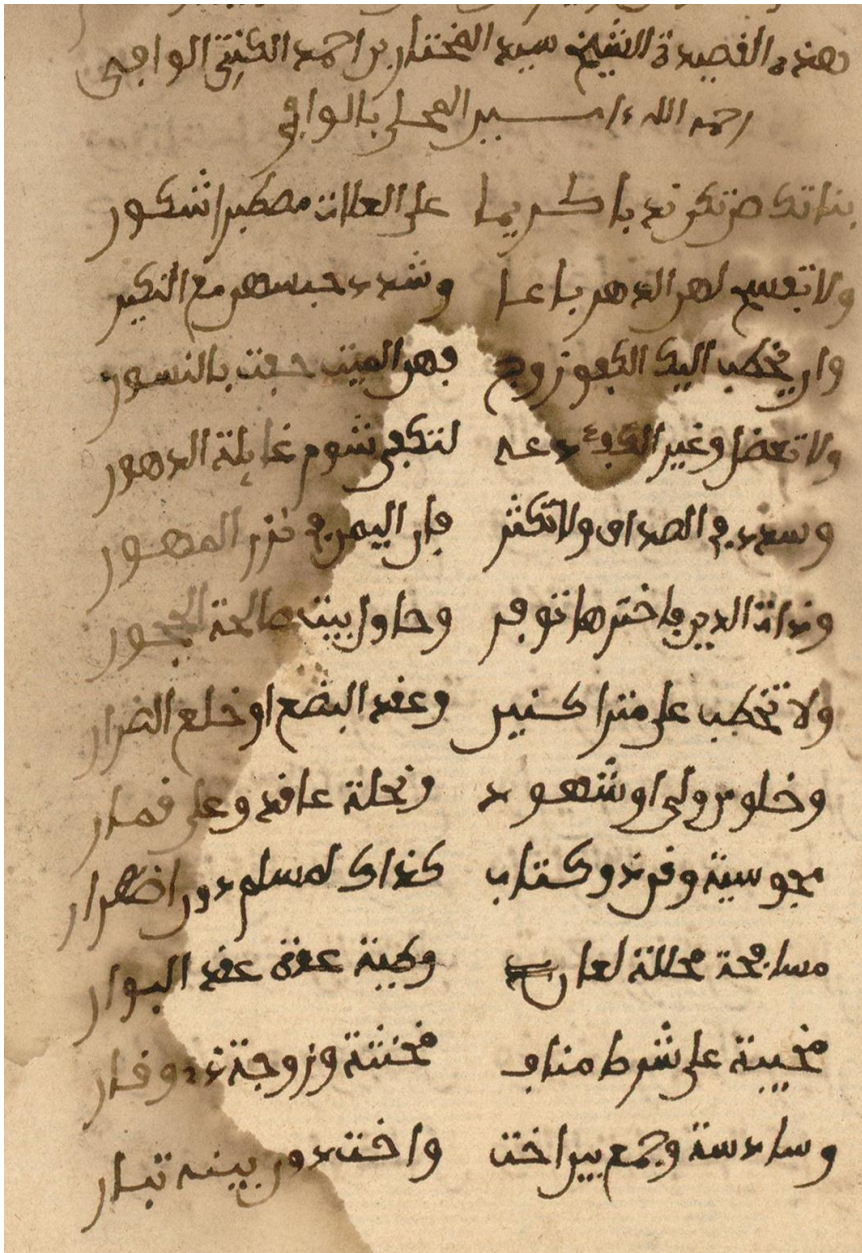 هذه القصيدة للشيخ سيد المختار بن احمد الكنتي الوافي
رحمه الله ءامين
بناتك صن تكن نه يا كريما على العلات مصطبرا شكور
ولا تفسح لهن الدهر باعا وشدد حبسهن مع النكير
وان يخطب اليك الكفو زوج فهن الميت حفت بالنسور
ولا تعضل وغير الكفؤ دعه لتكفى شوم غايلة الدهور
وسدد في الصداق ولا تكثر فان اليمن في نزر المهور
وذات الدين فاخترها توفر وحاول بيت صالحة الحجور
ولا تخطب على متراكنين وعقد البضع او خلع الضرار
وخلو من ولي او شهود ونحلة عاقد وعلى قمار
مجوسية وقن ذو كتاب كذاك لمسلم دون اضطرار
مسافحة محللة لعان وطية عدة عقد البوار
مخيبة على شرط مناف مخنثة وزوجة ذو وقار
وسادسة وجمع بين اخت واخت دون بينه تبار